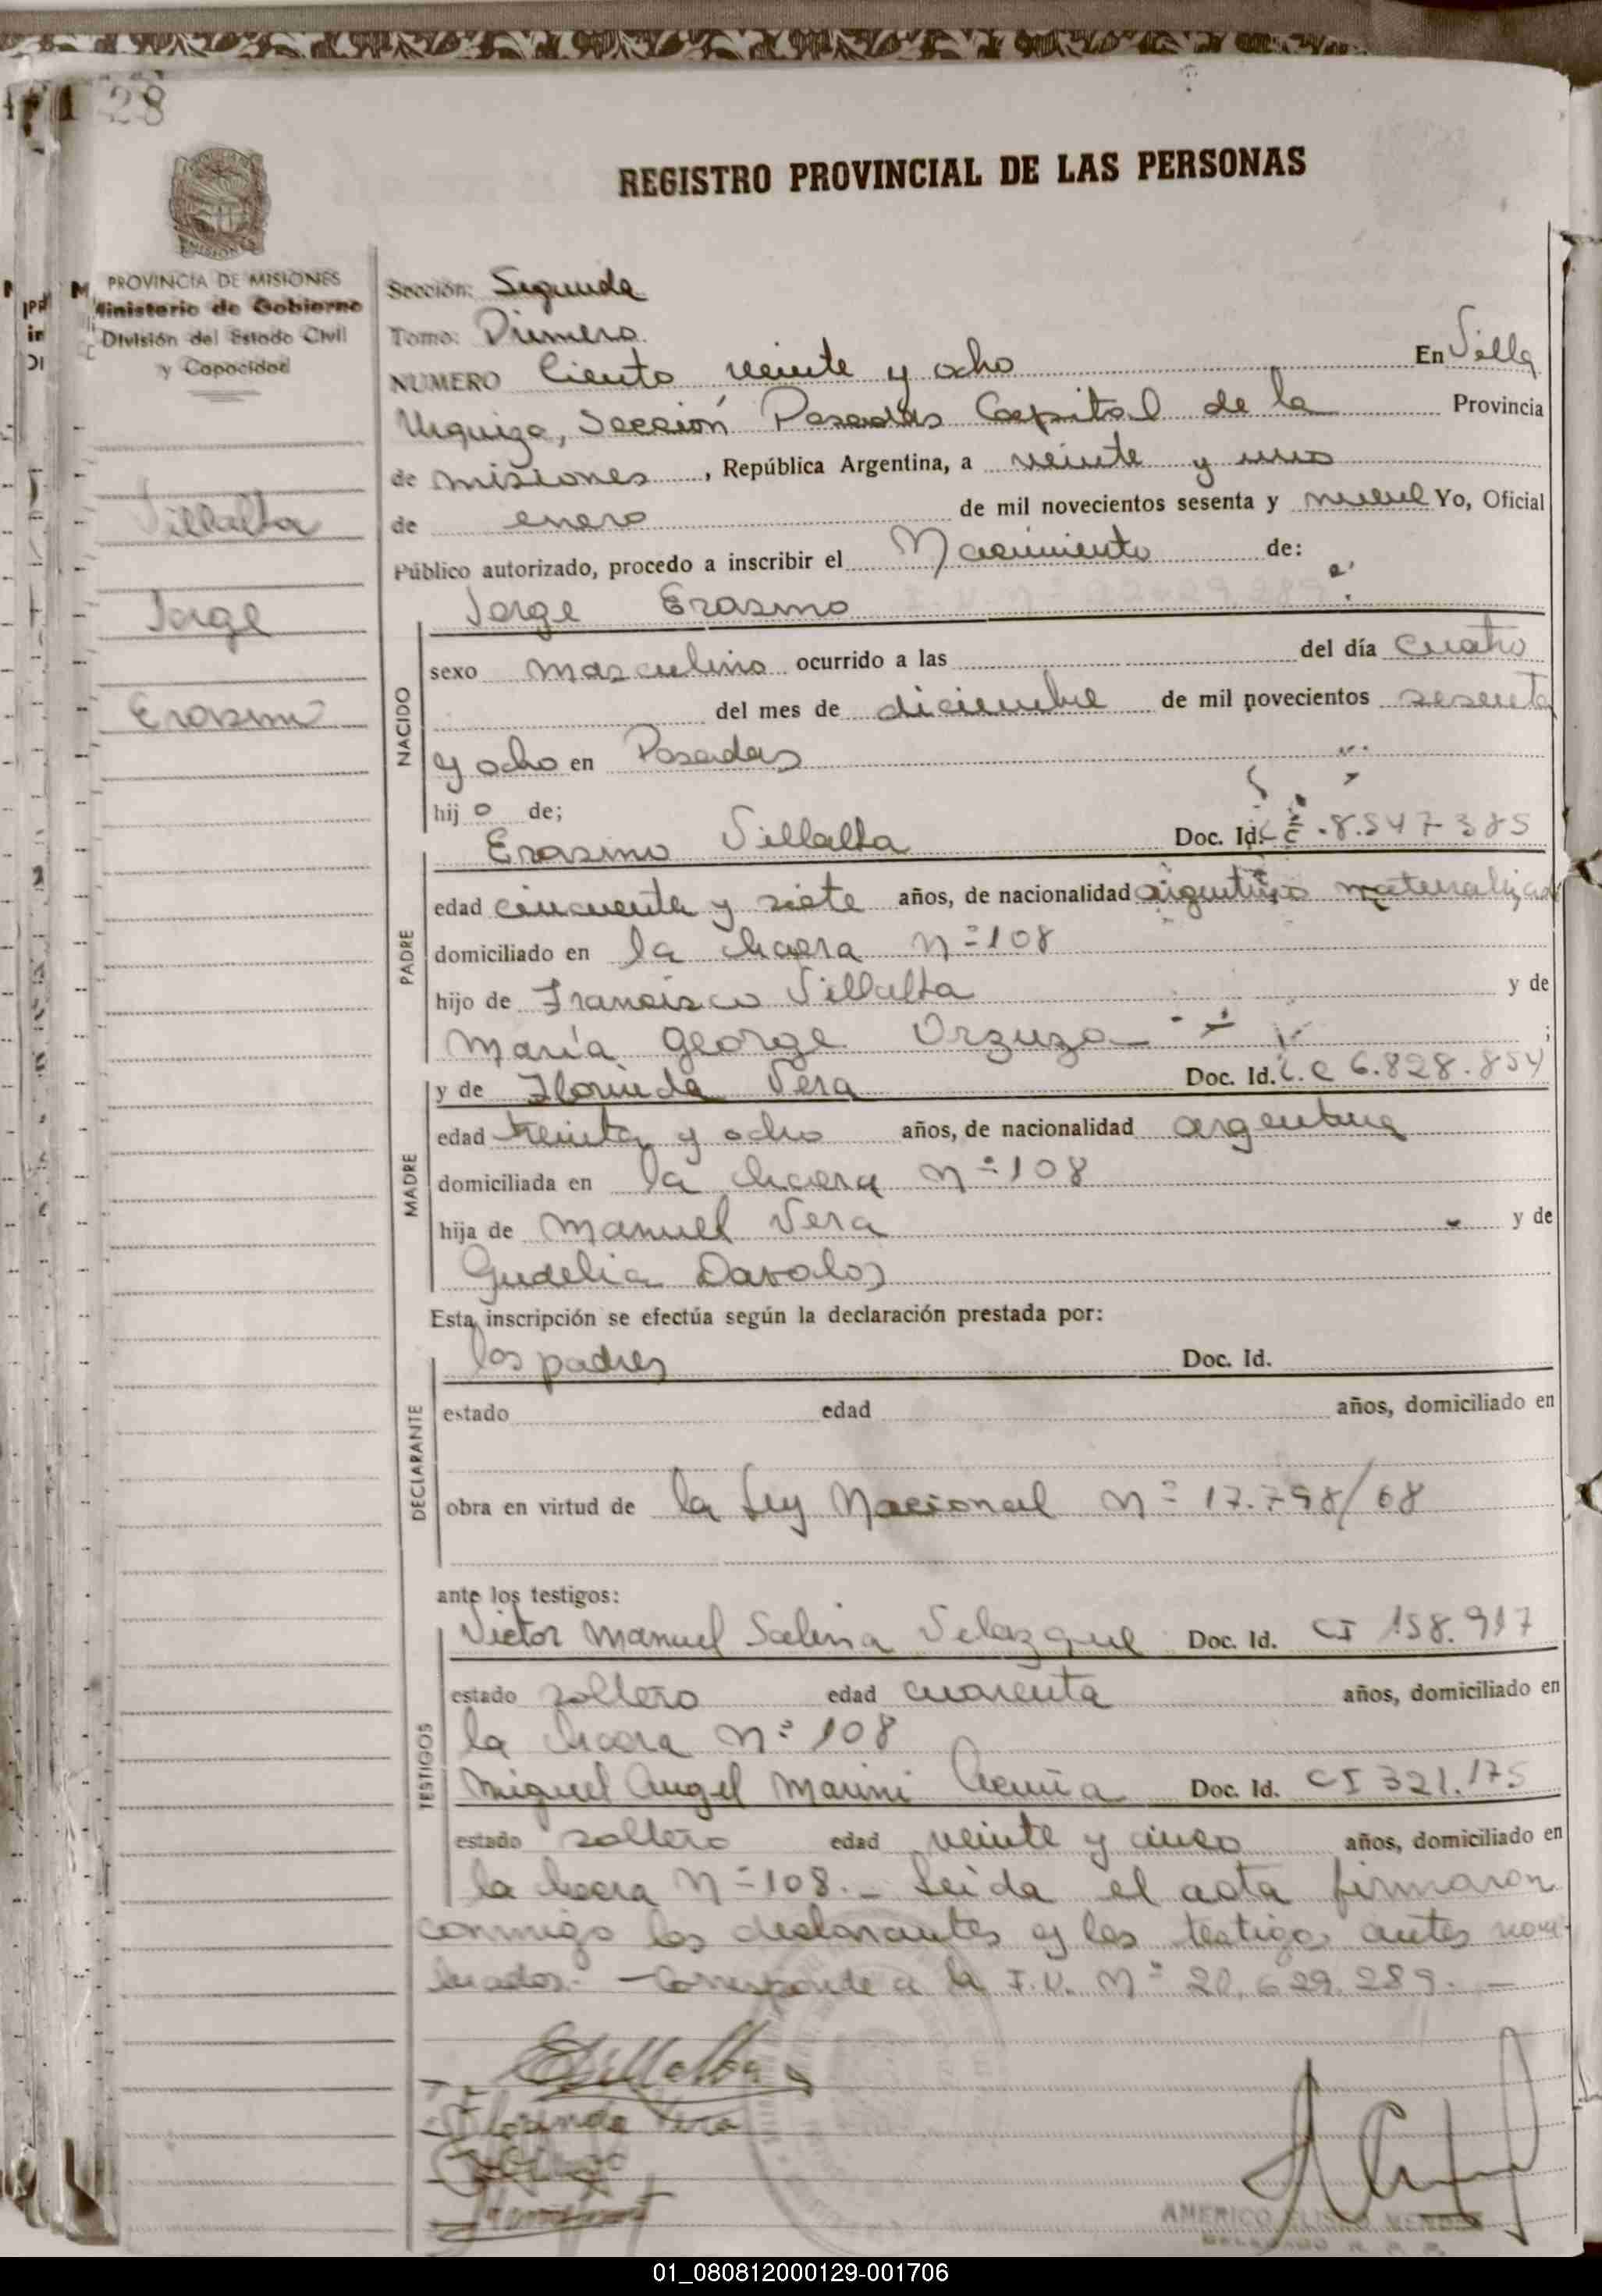 28
REGISTRO PROVINCIAL DE LAS PERSONAS
PROVINCIA DE MISIONES
Ministerio de Gobierno
División del Estado Civil
y Capacidad
Villalta
Jorge
Erasmo
Sección: Segunda
Tomo: Primero
NUMERO Ciento veinte y ocho En Villa
Urquiza, Sección Posadas Capital de la Provincia
de misiones, República Argentina, a veinte y uno
de enero de mil novecientos sesenta y nueve Yo, Oficial
Público autorizado, procedo a inscribir el Nacimiento de:
Jorge Erasmo
NACIDO
sexo masculino ocurrido a las del día cuatro
del mes de diciembre de mil novecientos sesenta
y ocho en Posadas
hijo de;
PADRE
Erasmo Villalta Doc. Id. 8.547385
edad cincuenta y siete años, de nacionalidad argentino naturalizado
domiciliado en la chacra Nº 108
hijo de Francisco Villalta y de
María George Orzuza ;
MADRE
y de Florinda Vera Doc. Id. L.C 6.828.854
edad treinta y ocho años, de nacionalidad argentina
domiciliada en la chacra Nº 108
hija de Manuel Vera y de
Gudelia Davalos
Esta inscripción se efectúa según la declaración prestada por:
DECLARANTE
los padres Doc. Id.
estado edad años, domiciliado en
obra en virtud de la Ley Nacional Nº 17.798/68
ante los testigos:
TESTIGOS
Victor Manuel Salina Velazque Doc. Id. CI 158.917
estado soltero edad cuarenta años, domiciliado en
la chacra Nº 108
Miguel Angel Marini Acuña Doc. Id. CI 321.175
estado soltero edad veinte y cinco años, domiciliado en
la chacra Nº 108.- Leida el acta firmaron
conmigo los declarantes y los testigos antes nom-
brados.- Corresponde a la I.U. Nº 20.629.289.-
EVillalta
Florinda Vera
AMERICO ELISEO MENDEZ
01_080812000129-001706